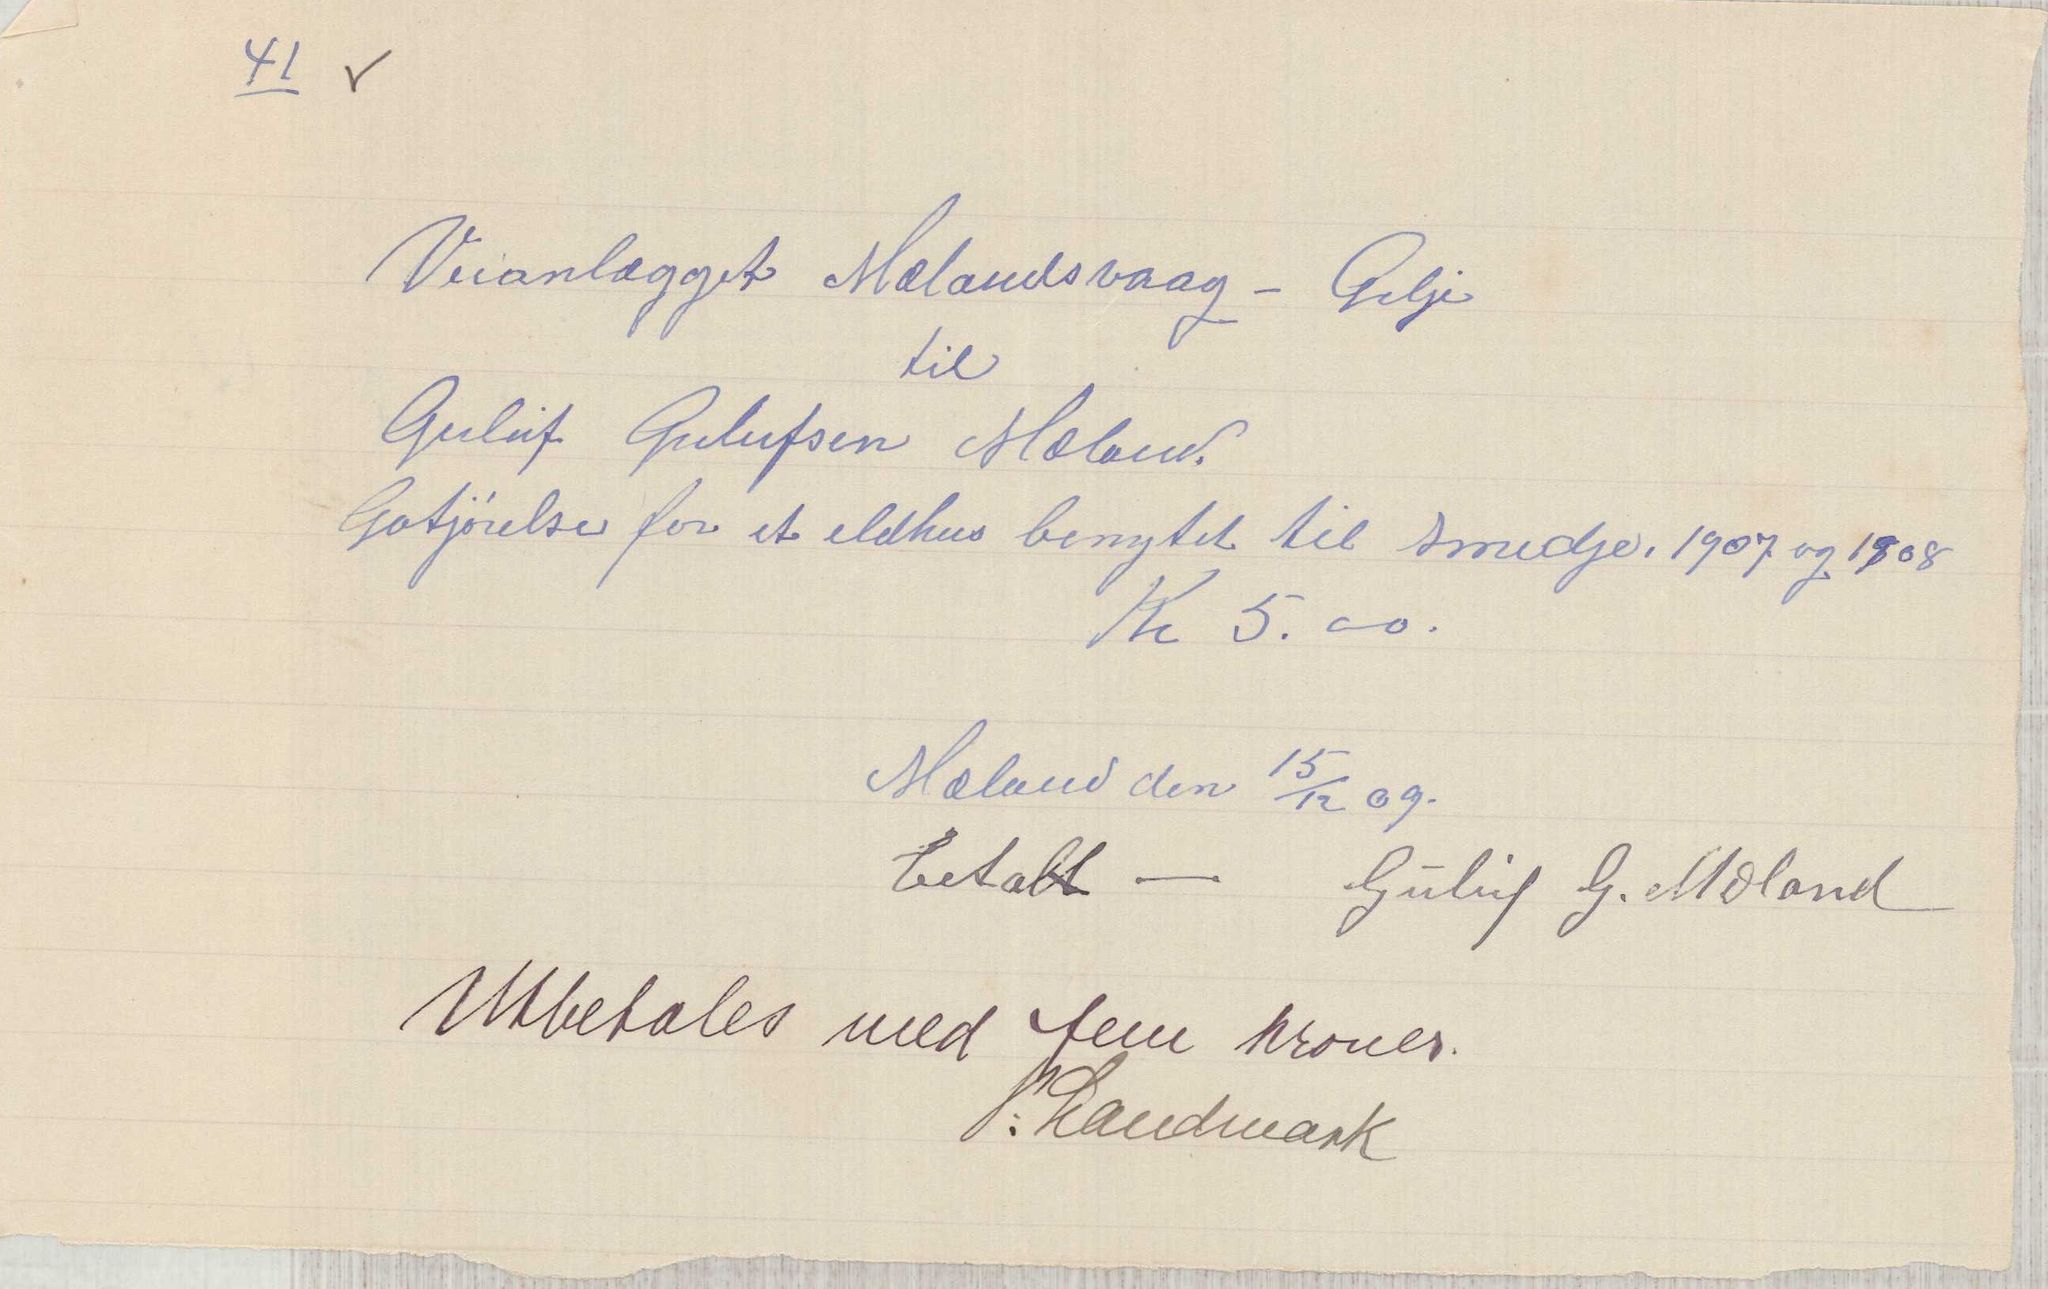 41 ✓
Veianlægget Mælandsvaag - Gilje
til
Guluf Gulufsen Mæland.
Gotjörelse for et eldhus benytet til smedje. 1907 og 1908
Kr 5.00.
Mæland den 15/12 09.
betalt — Guluf G. Mæland
Utbetales med fem kroner.
Landmark